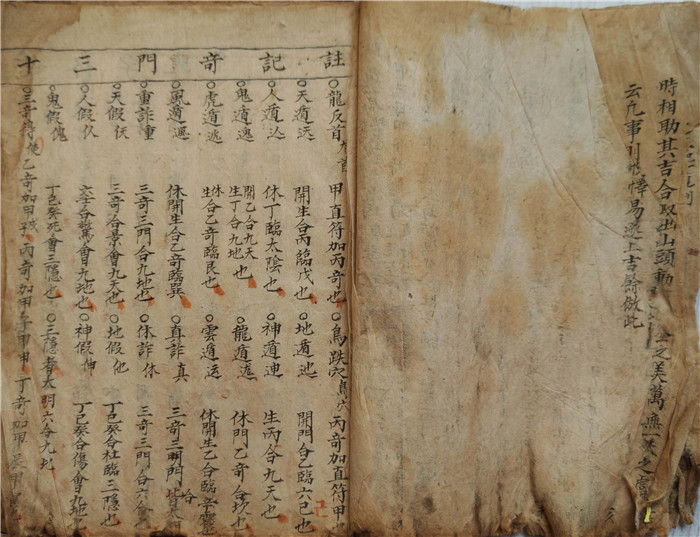 時相助其吉合取出山頭動
之美萬無一失之
云凡事
擇易選上吉
倣此
註記奇門三十
○龍反首 甲直符加丙奇也 ○鳥跌穴 丙奇加直符甲也
○天遁 開生合丙臨戊也 ○地遁 開門合乙臨六己也
○人遁 休丁臨太陰也 ○神遁 生丙合九天也
○鬼遁 開乙合九天也 生丁合九地也 ○龍遁 休門乙奇合坎也
○虎遁 休生合乙奇臨艮也 ○雲遁 休開生乙合臨辛
○風遁 休開生合乙奇臨巽 ○真詐真 三奇三門
○重詐重 三奇三門合九地也 ○休詐休 三奇三門合六合
○天假 三奇合景會九天也 ○地假 丁己癸合杜臨三隱也
○人假 六壬合驚會九地也 ○神假神 丁己癸合傷會九地也
○鬼假 丁己癸死會三隱也 ○三隱者太 明六合九地
○三奇得使 乙奇加甲戌 丙奇加甲子甲申 丁奇加甲辰甲